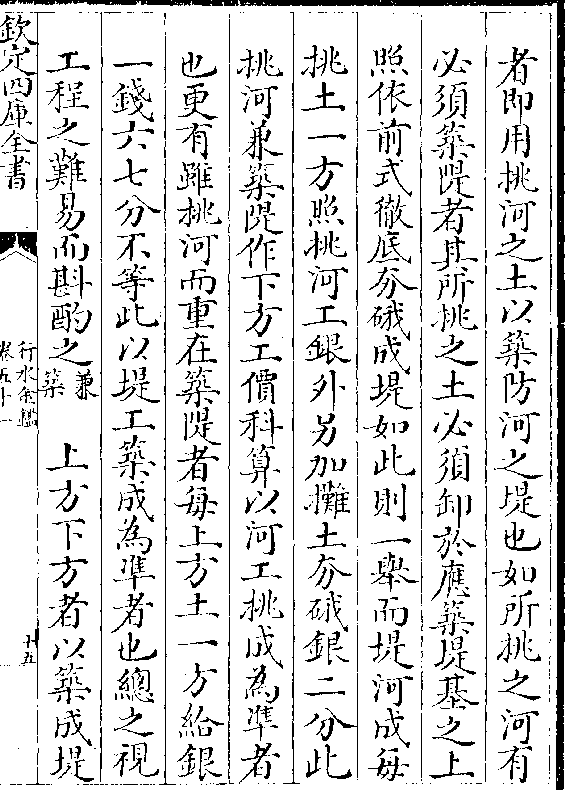 者即用挑河之土以築防河之堤也如所挑之河有
必須築隄者其所挑之土必須卸於應築堤基之上
照依前式徹底夯硪成堤如此則一舉而堤河成毎
挑土一方照挑河工銀外另加攤土夯硪銀二分此
挑河兼築隄作下方工價科算以河工挑成為凖者
也更有雖挑河而重在築隄者毎上方土一方給銀
一錢六七分不等此以堤工築成為凖者也總之視
工程之難易而斟酌之兼築　上方下方者以築成堤
欽定四庫全書
行水金鑑
卷五十一
十五